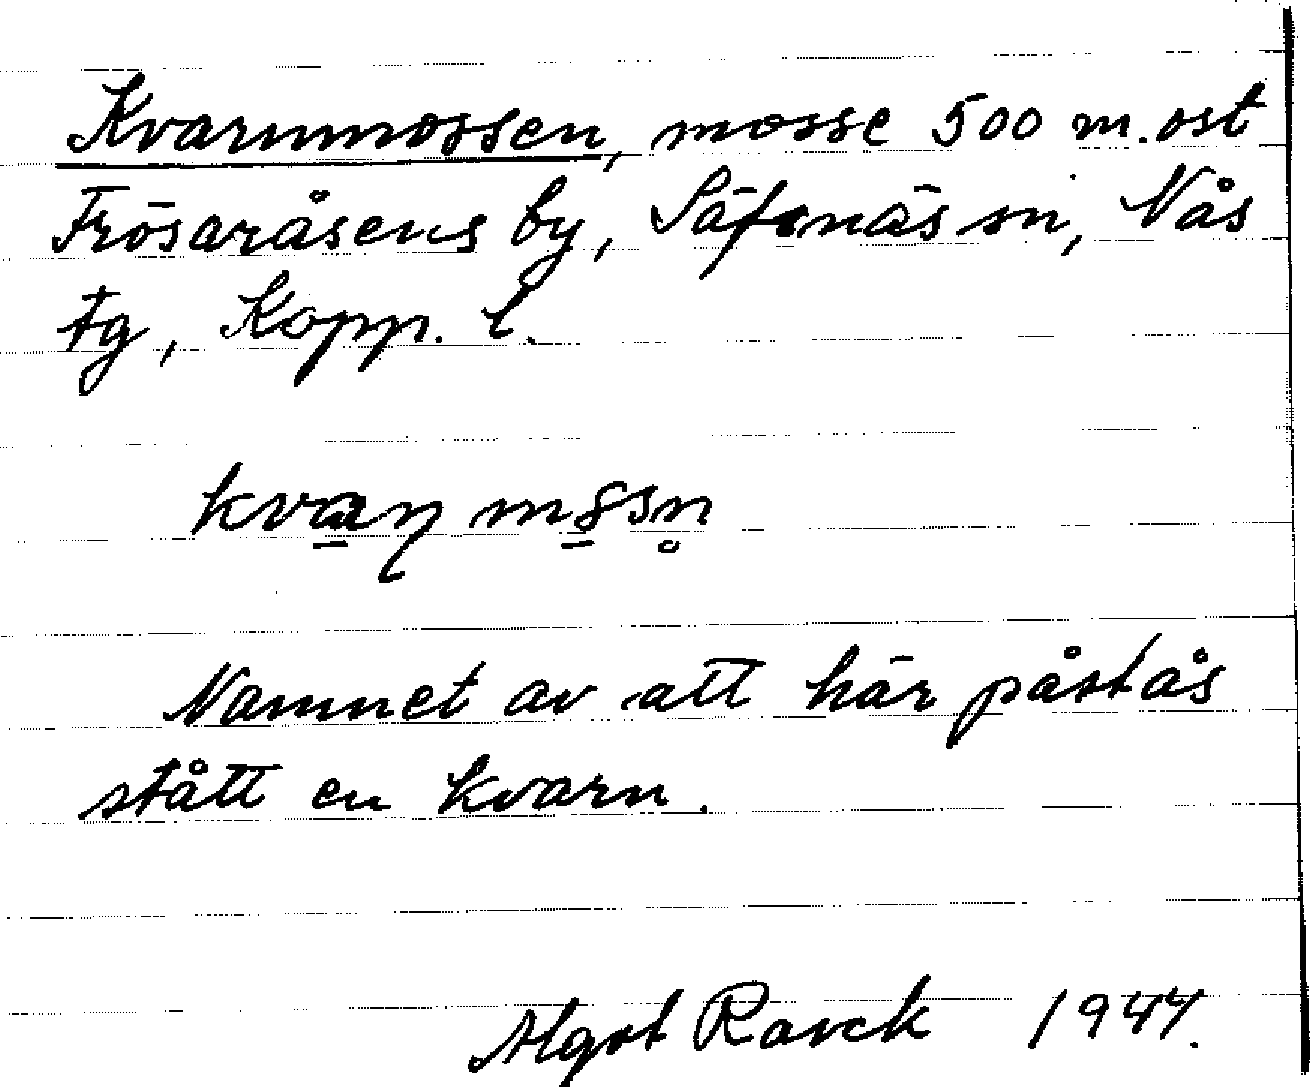 Kvarnmossen, mosse 500 m. ost
Frösaråsens by, Säfsnäs sn, Nås
tg, Kopp. l.
kvaɳ mssn̥
Namnet av att här påstås
stått en kvarn.
Algot Rarck 1944.